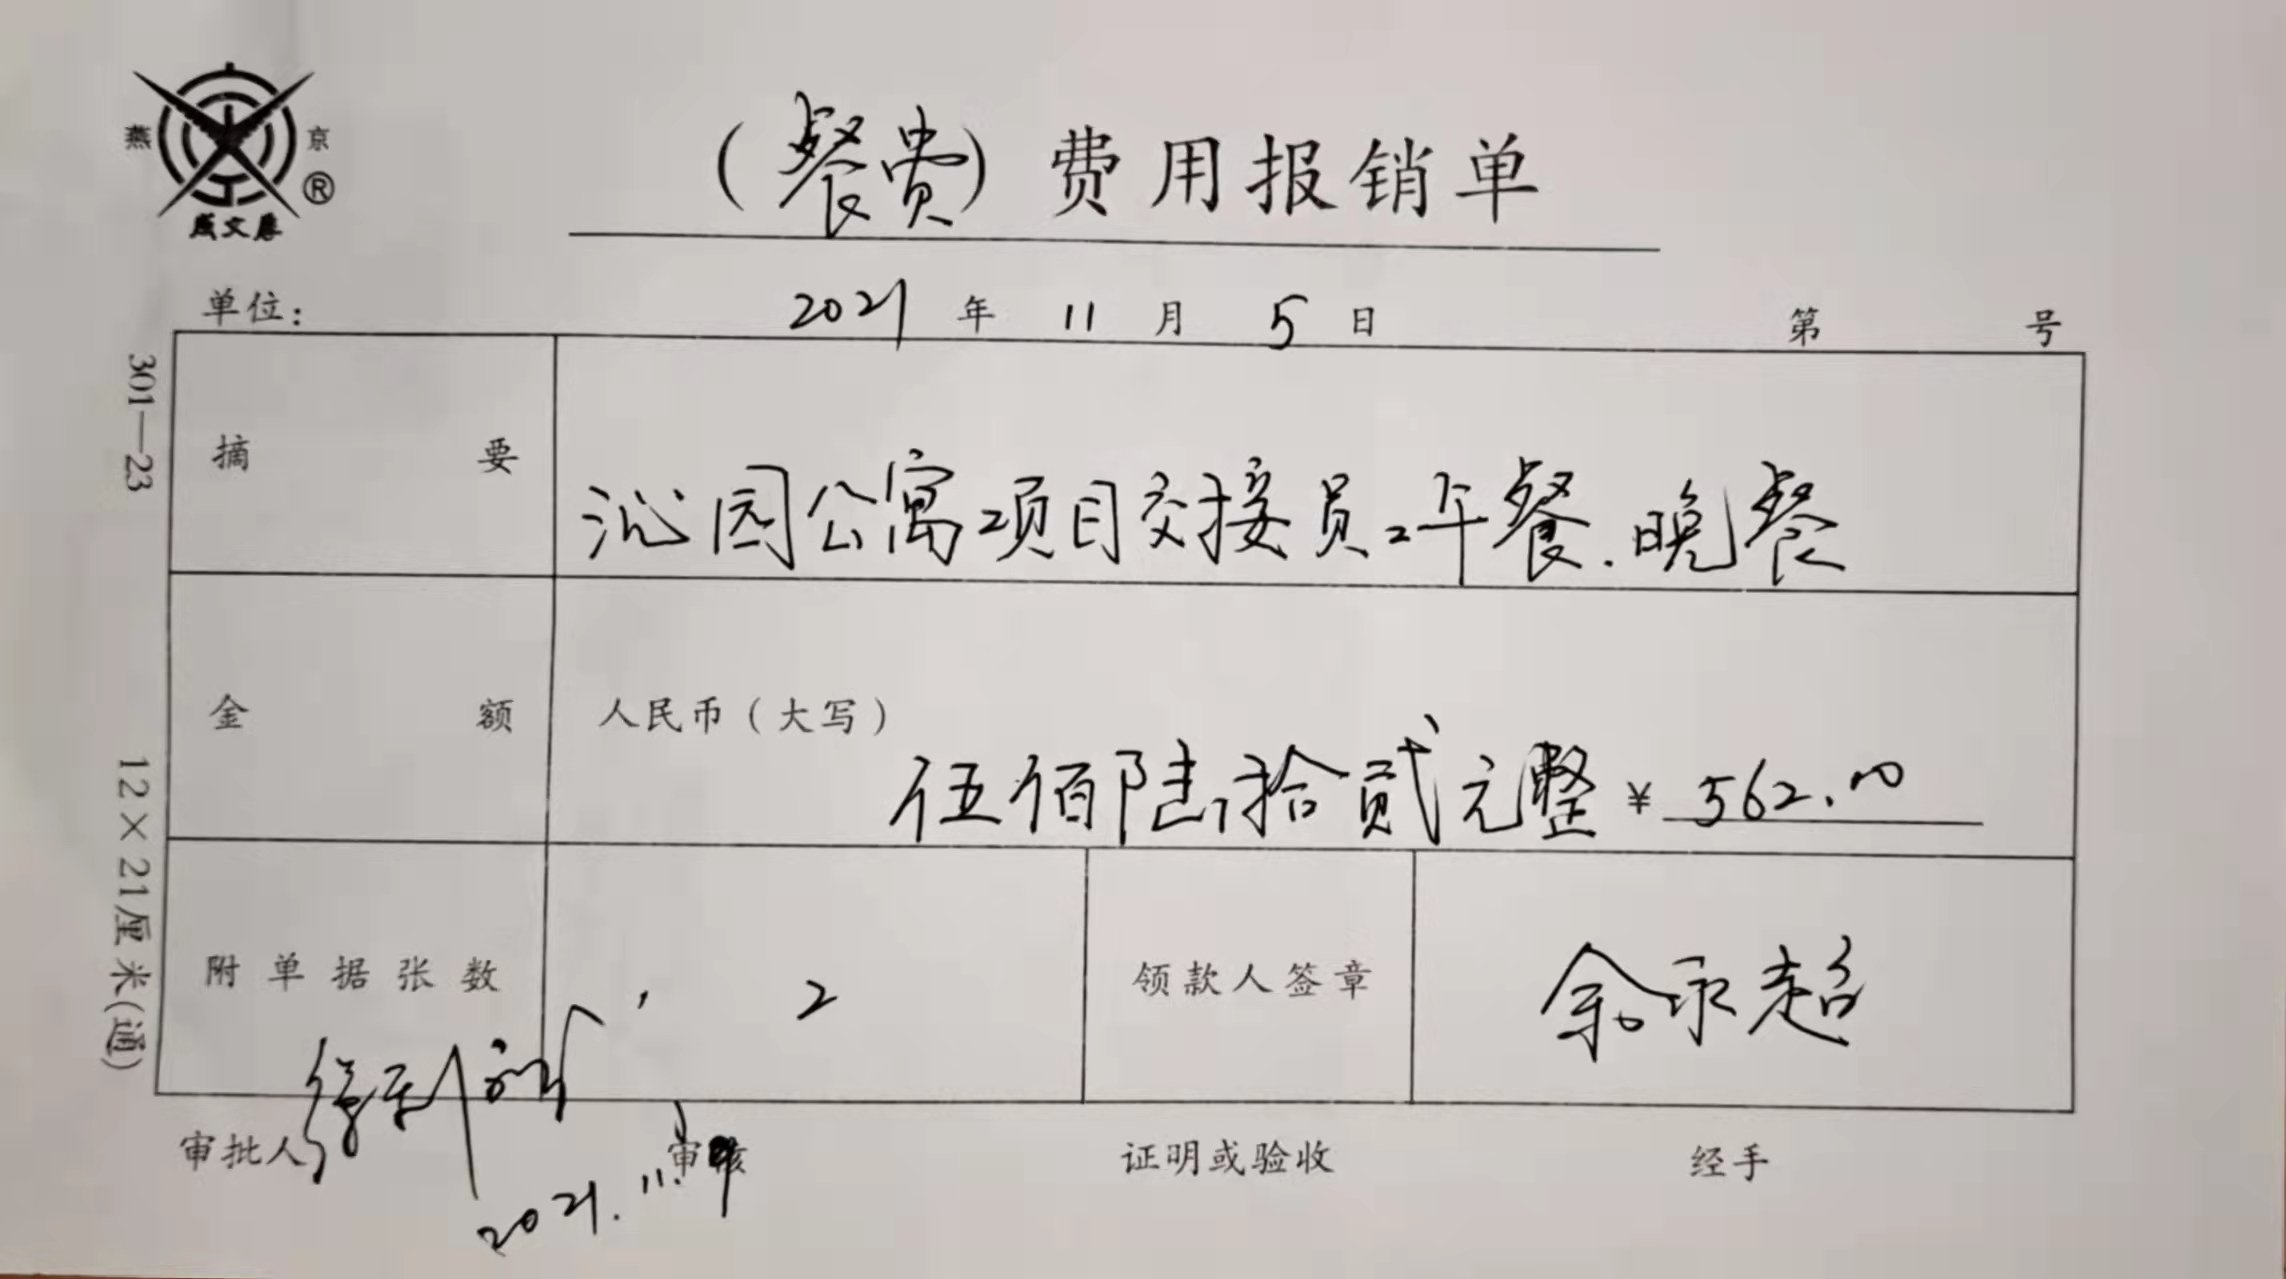 燕 京
®
成文厚
(餐费) 费用报销单
单位: 2021 年 11 月 5 日 第 号
301—23
12×21厘米(通)
摘 要 沁园公寓项目交接员工午餐.晚餐
金 额 人民币(大写) 伍佰陆拾贰元整 ¥ 562.00
附单据张数 2 领款人签章 余永超
审批人 审核 证明或验收 经手
2021.11.9